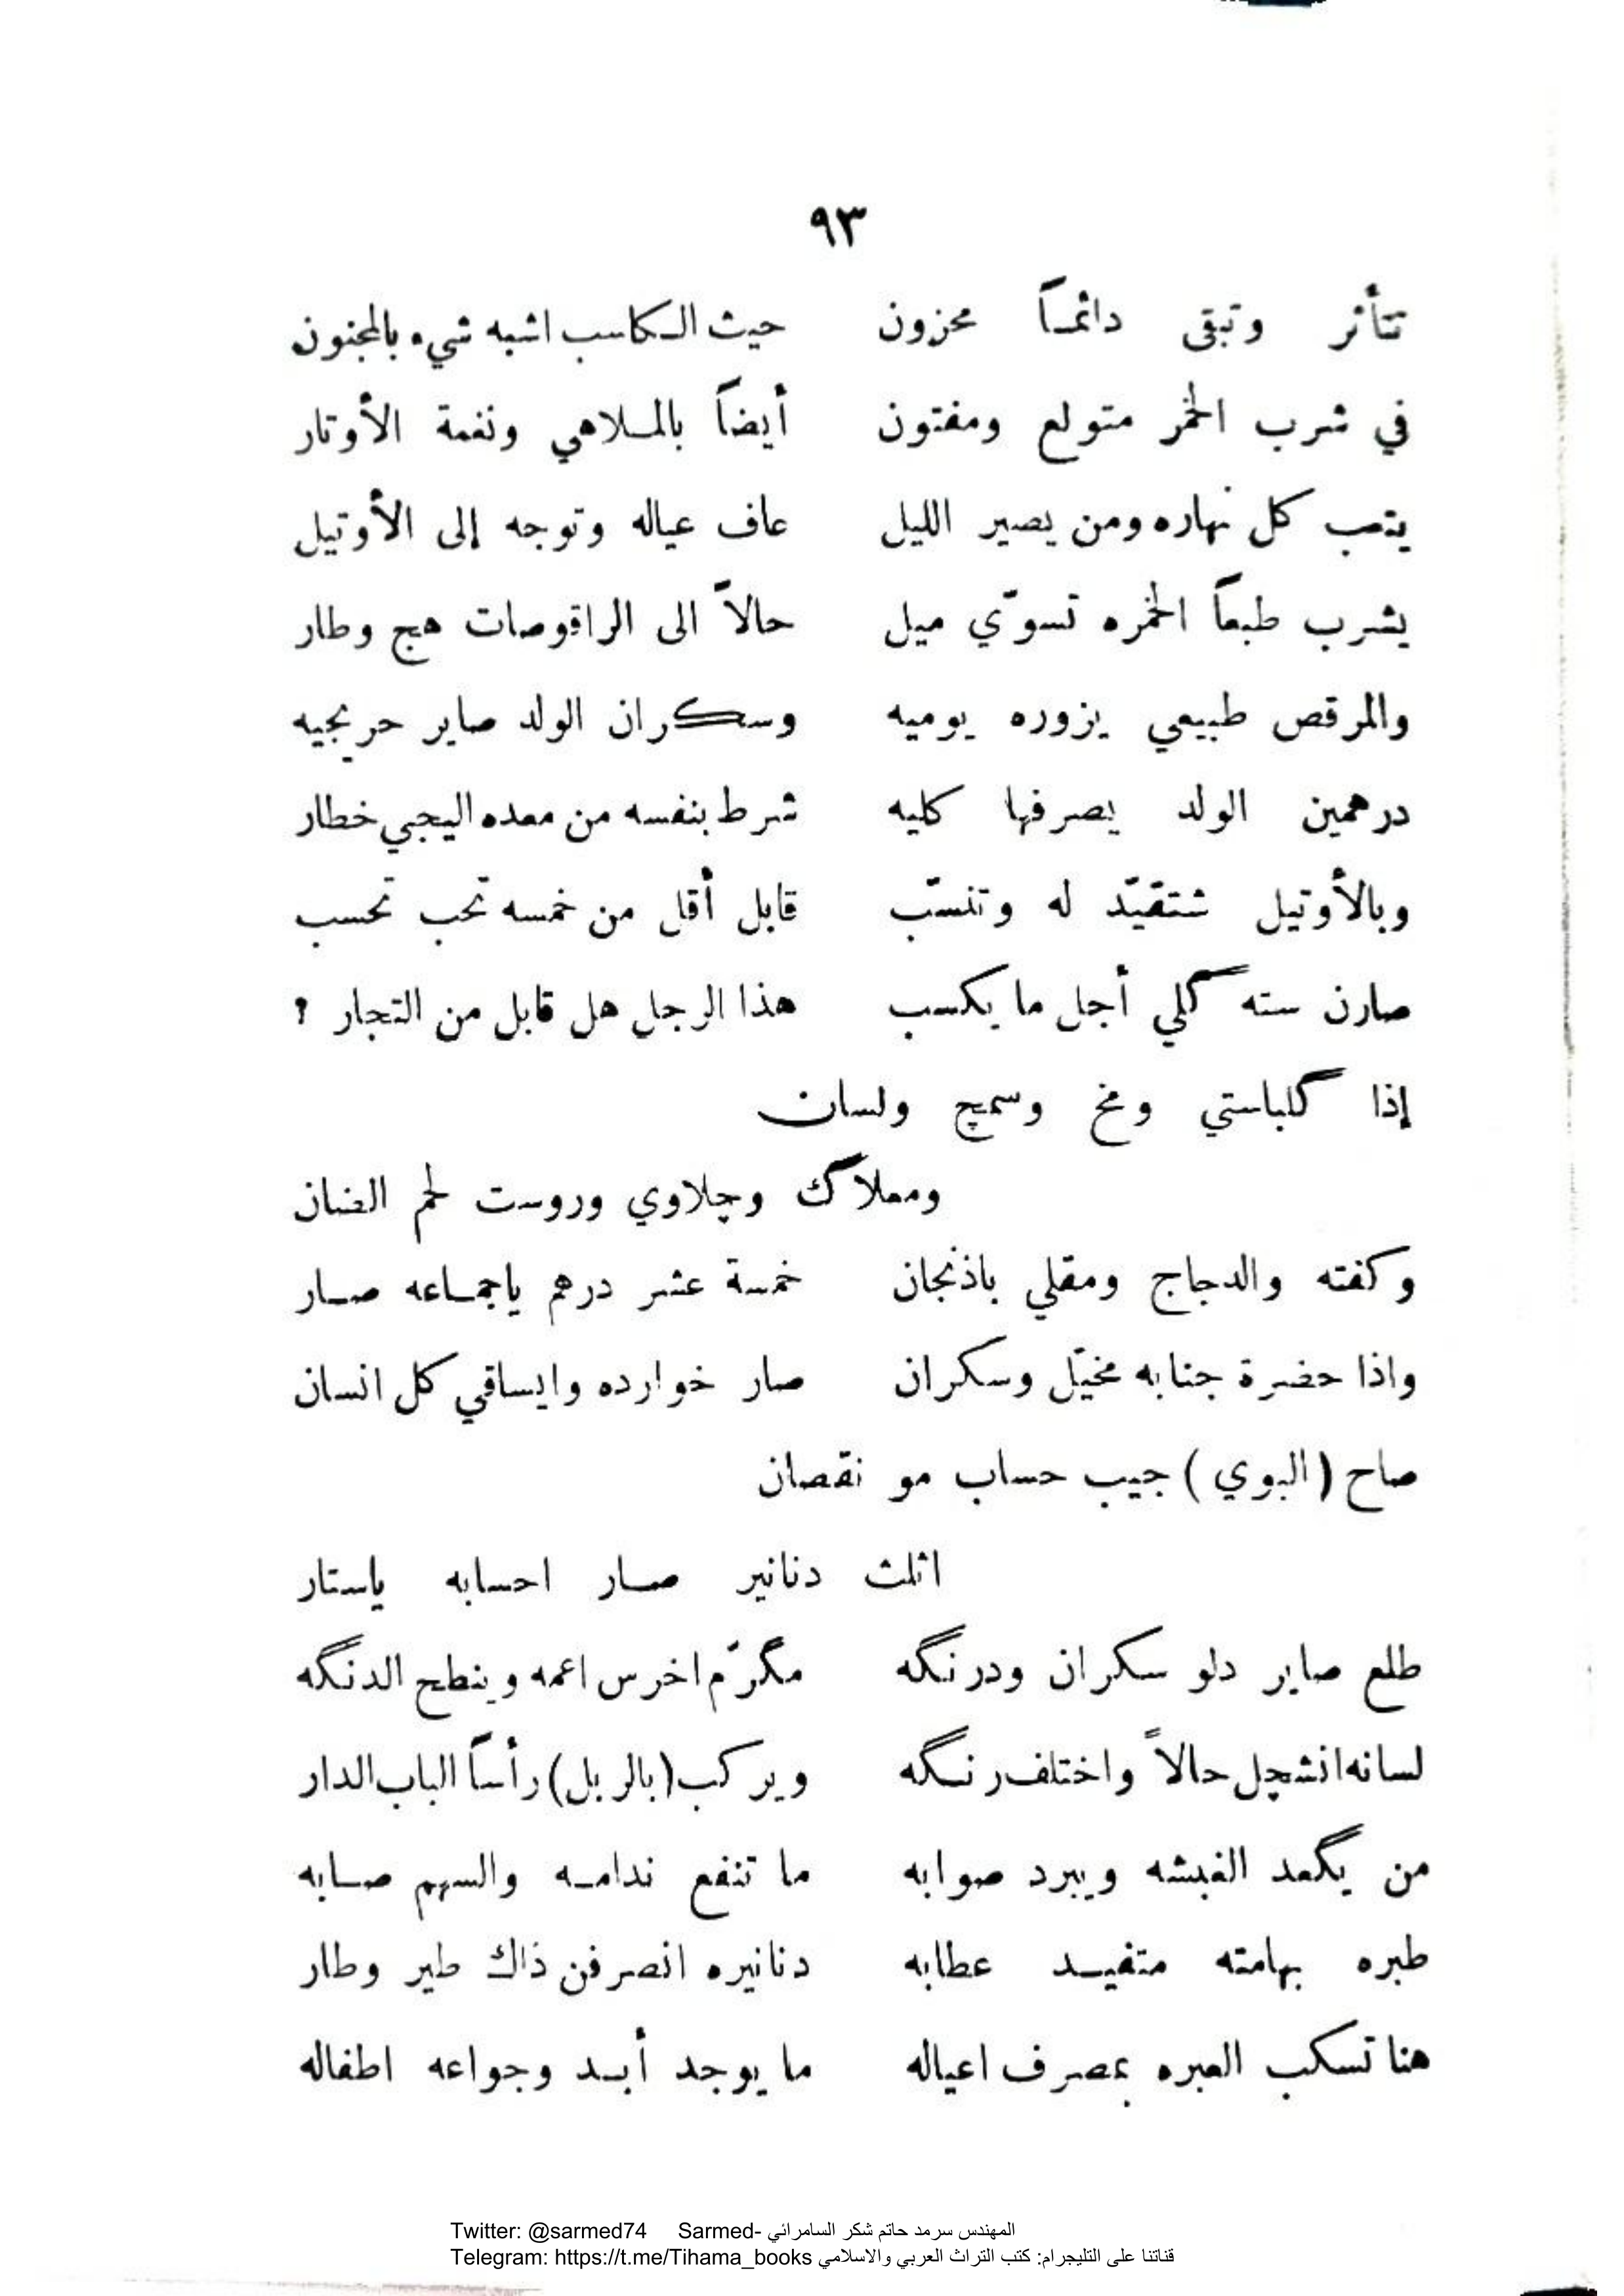 ٩٣
تتأثر وتبقى دائماً محزون حيث الكاسب اشبه شيء بالمجنون
في شرب الخمر متولع ومفتون أيضاً بالملاهي ونغمة الأوتار
يتعب كل نهاره ومن يصير الليل عاف عياله وتوجه إلى الأوتيل
يشرب طبعاً الخمره تسوّي ميل حالاً الى الراقوصات هج وطار
والمرقص طبيعي يزوره يوميه وسكران الولد صاير حربجيه
درهمين الولد يصرفها كليه شرط بنفسه من معده اليجي خطار
وبالأوتيل شتقيّد له وتنسّب قابل أقل من خمسه تحب تحسب
صارن سته گلي أجل ما يكسب هذا الرجل هل قابل من التجار ؟
إذا گلباستي ومخ وسمچ ولسان
ومعلاگ وچلاوي وروست لحم الضان
وكفته والدجاج ومقلي باذنجان خمسة عشر درهم ياجماعه صار
واذا حضرة جنابه مخيّل وسكران صار خوارده وايساقي كل انسان
صاح (البوي) جيب حساب مو نقصان
اثلث دنانير صار احسابه ياستار
طلع صاير دلو سكران ودرنگه مگرّم اخرس اعمه وينطح الدنگه
لسانه انشچل حالاً واختلف رنگه ويركب (بالربل) رأساً الباب الدار
من يگعد الغبشه ويبرد صوابه ما تنفع ندامه والسهم صابه
طبره بهامته متفيد عطابه دنانيره انصرفن ذاك طير وطار
هنا تسكب العبره بمصرف اعياله ما يوجد أبد وجواعه اطفاله
Twitter: @sarmed74 Sarmed- المهندس سرمد حاتم شكر السامرائي
Telegram: https://t.me/Tihama_books قناتنا على التليجرام: كتب التراث العربي والاسلامي